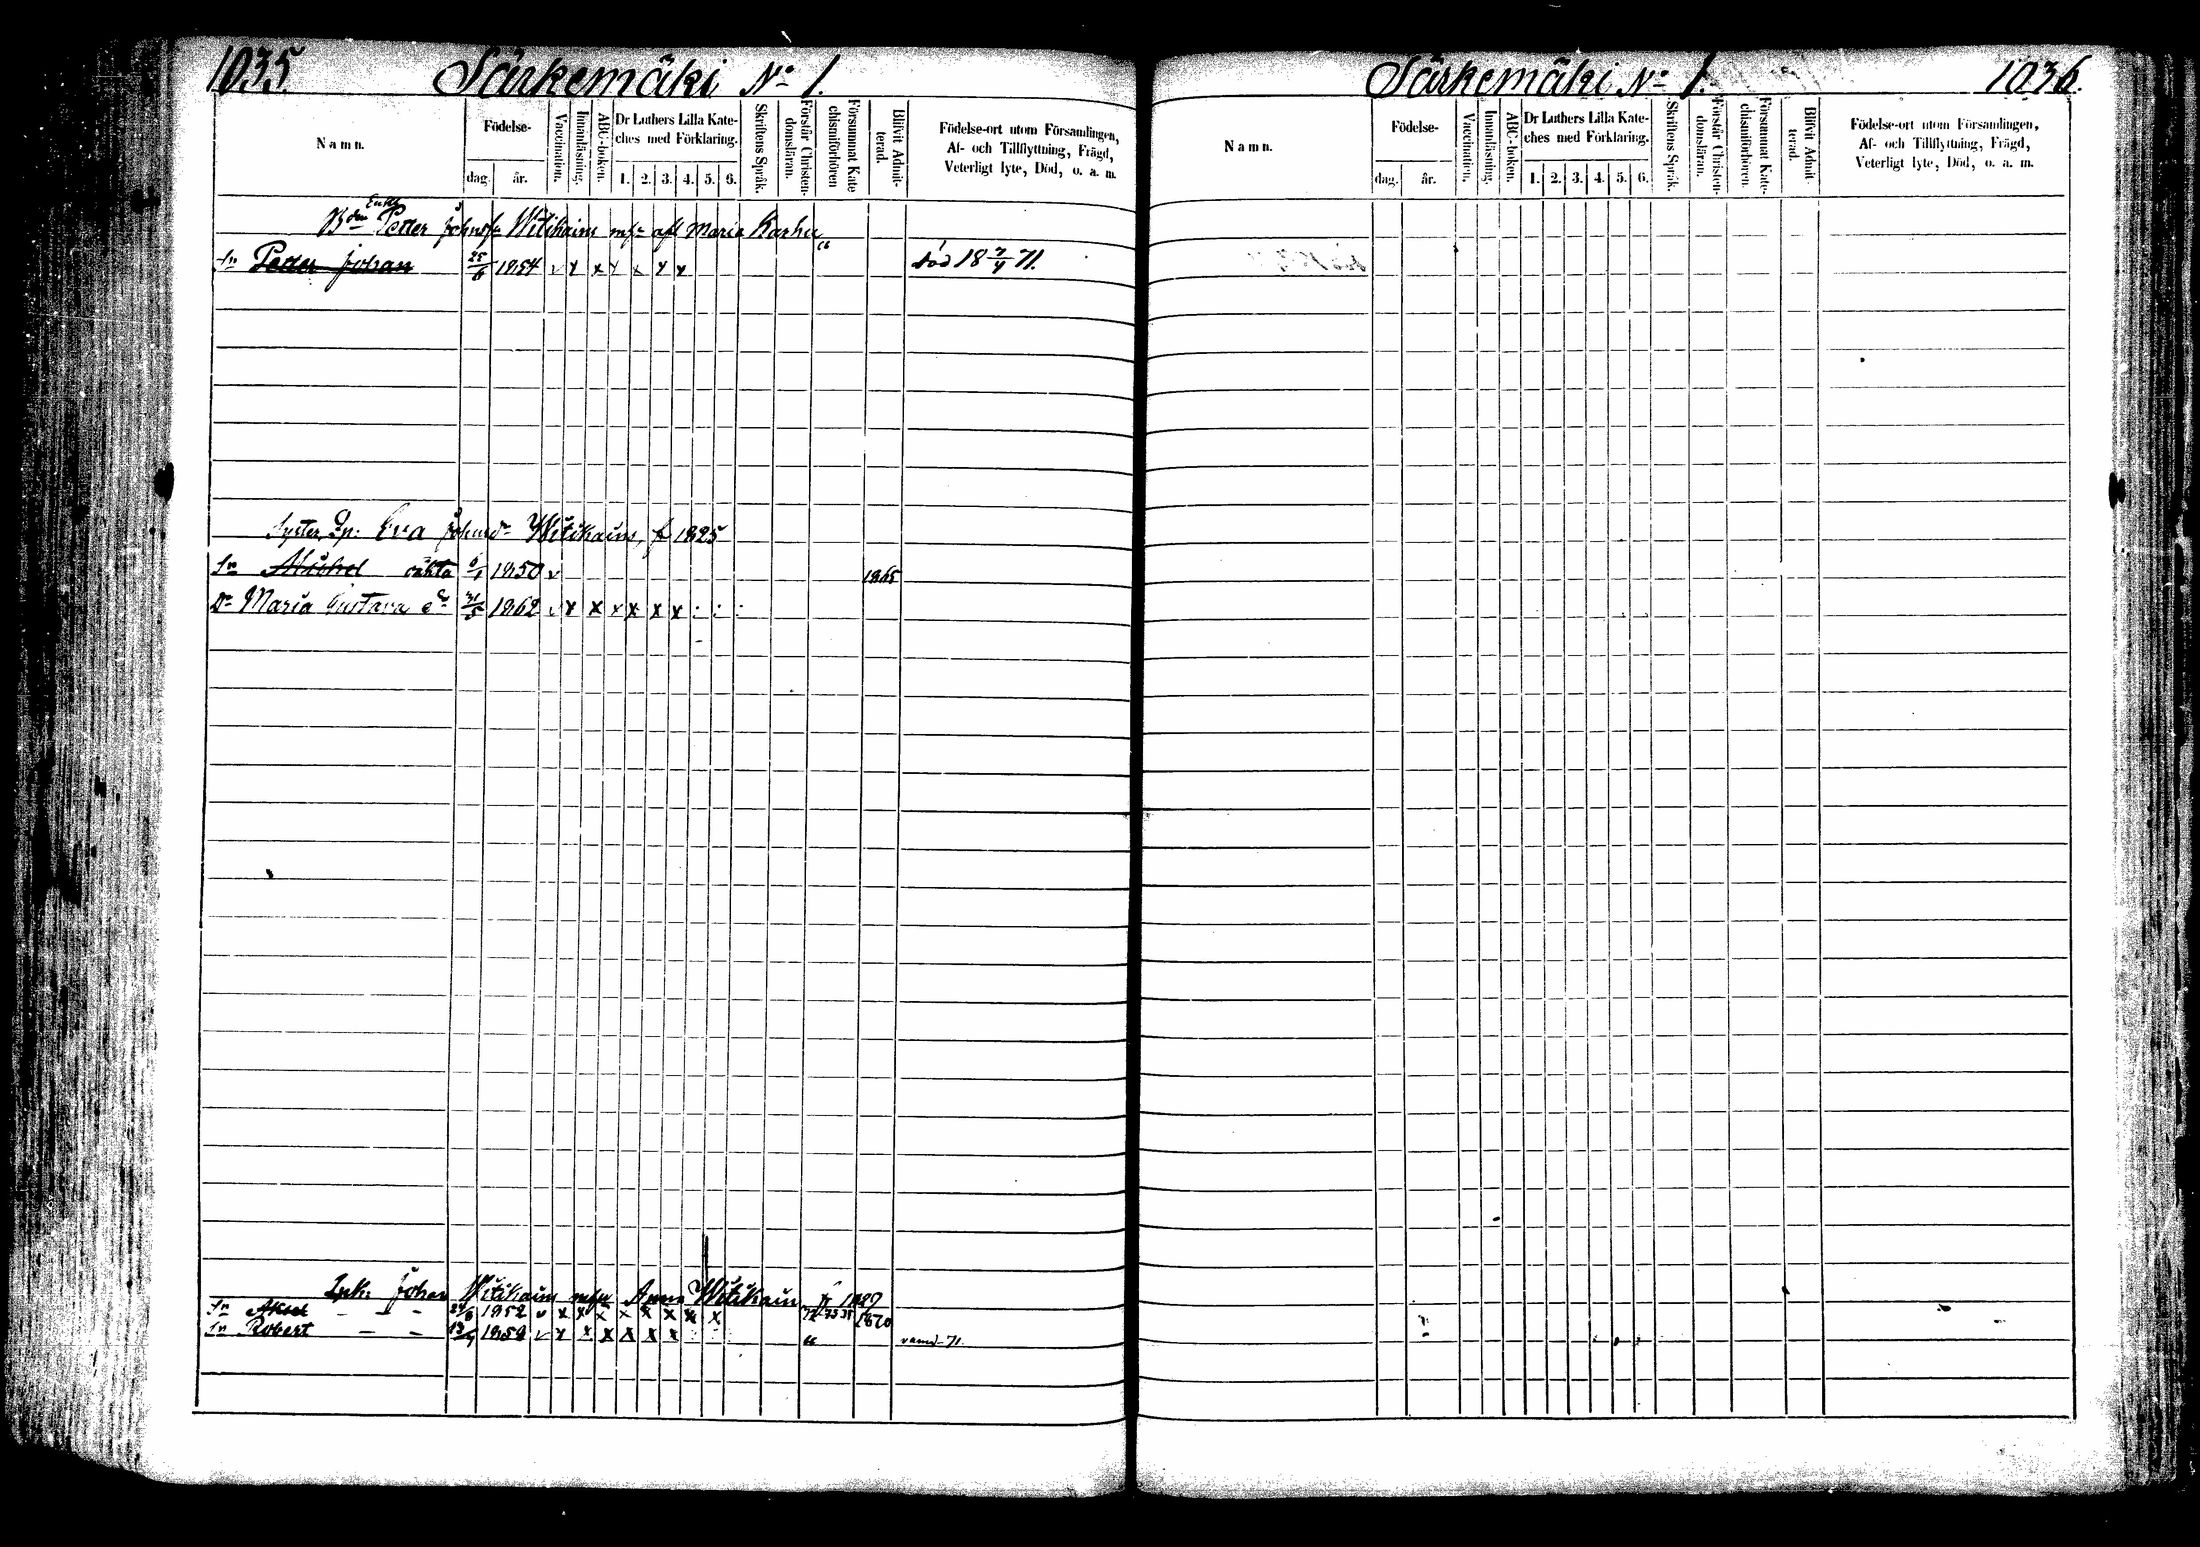 1035 Särkemäki No 1.
Namn.
Födelse-
dag. år.
Vaccination.
Innanläsning.
ABC-boken.
Dr Luthers Lilla Kate-
ches med Förklaring.
1. 2. 3. 4. 5. 6.
Skriftens Språk.
Förstår Christen-
domsläran.
Försummat Kate-
chismiförhören
Blifvit Admit-
terad.
Födelse-ort utom Församlingen,
Af- och Tillflyttning, Frägd,
Veterligt lyte, Död, o. a. m.
Enkl
Bdn Petter Johns Witikain Maria Karhu
Sn Petter Johan 25/6 1854 v x x x x x x död 18 7/4 71.
Syster Eva Johnsdr Witikain, f 1825
Sn Michel oäkta 1850 v 1865
Dr Maria Gustava 31/5 1862 v x x x x x x : : :
Johan Witikain Anna Witikain f 1827
Sn Aksel – – – 1852 v x x x x x x x x 1870
Sn Robert – – 1858 v x x x x x x 71.
Särkemäki No 1. 1036.
Namn.
Födelse-
dag. år.
Vaccination.
Innanläsning.
ABC-boken.
Dr Luthers Lilla Kate-
ches med Förklaring.
1. 2. 3. 4. 5. 6.
Skriftens Språk.
Förstår Christen-
domsläran.
Försummat Kate-
chismiförhören.
Blifvit Admit-
terad.
Födelse-ort utom Församlingen,
Af- och Tillflyttning, Frägd,
Veterligt lyte, Död, o. a. m.